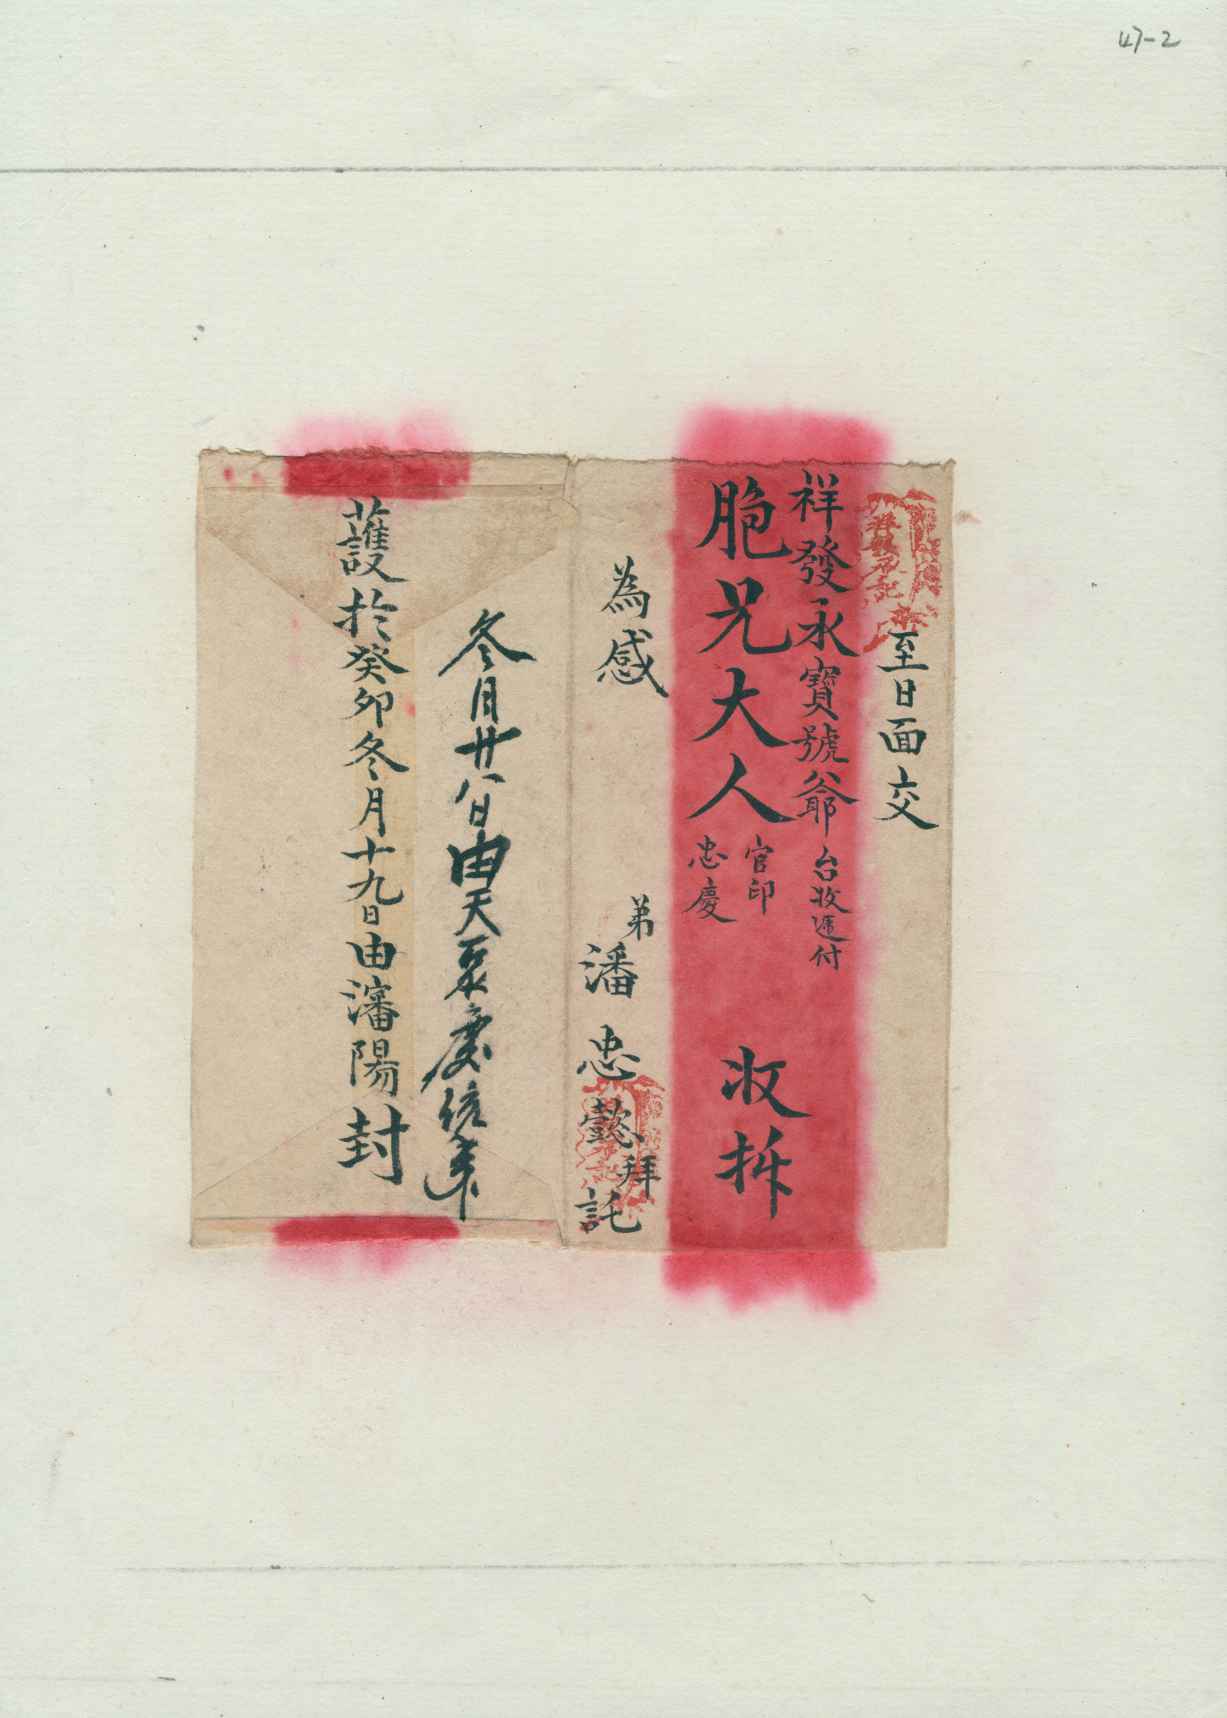 47-2
至日面交
祥發永寶號爺台收遞付
胞兄大人官印忠慶 收拆
為感
弟潘忠懿拜託
冬月廿八日由天聚慶信來
護於癸卯冬月十九日由瀋陽封